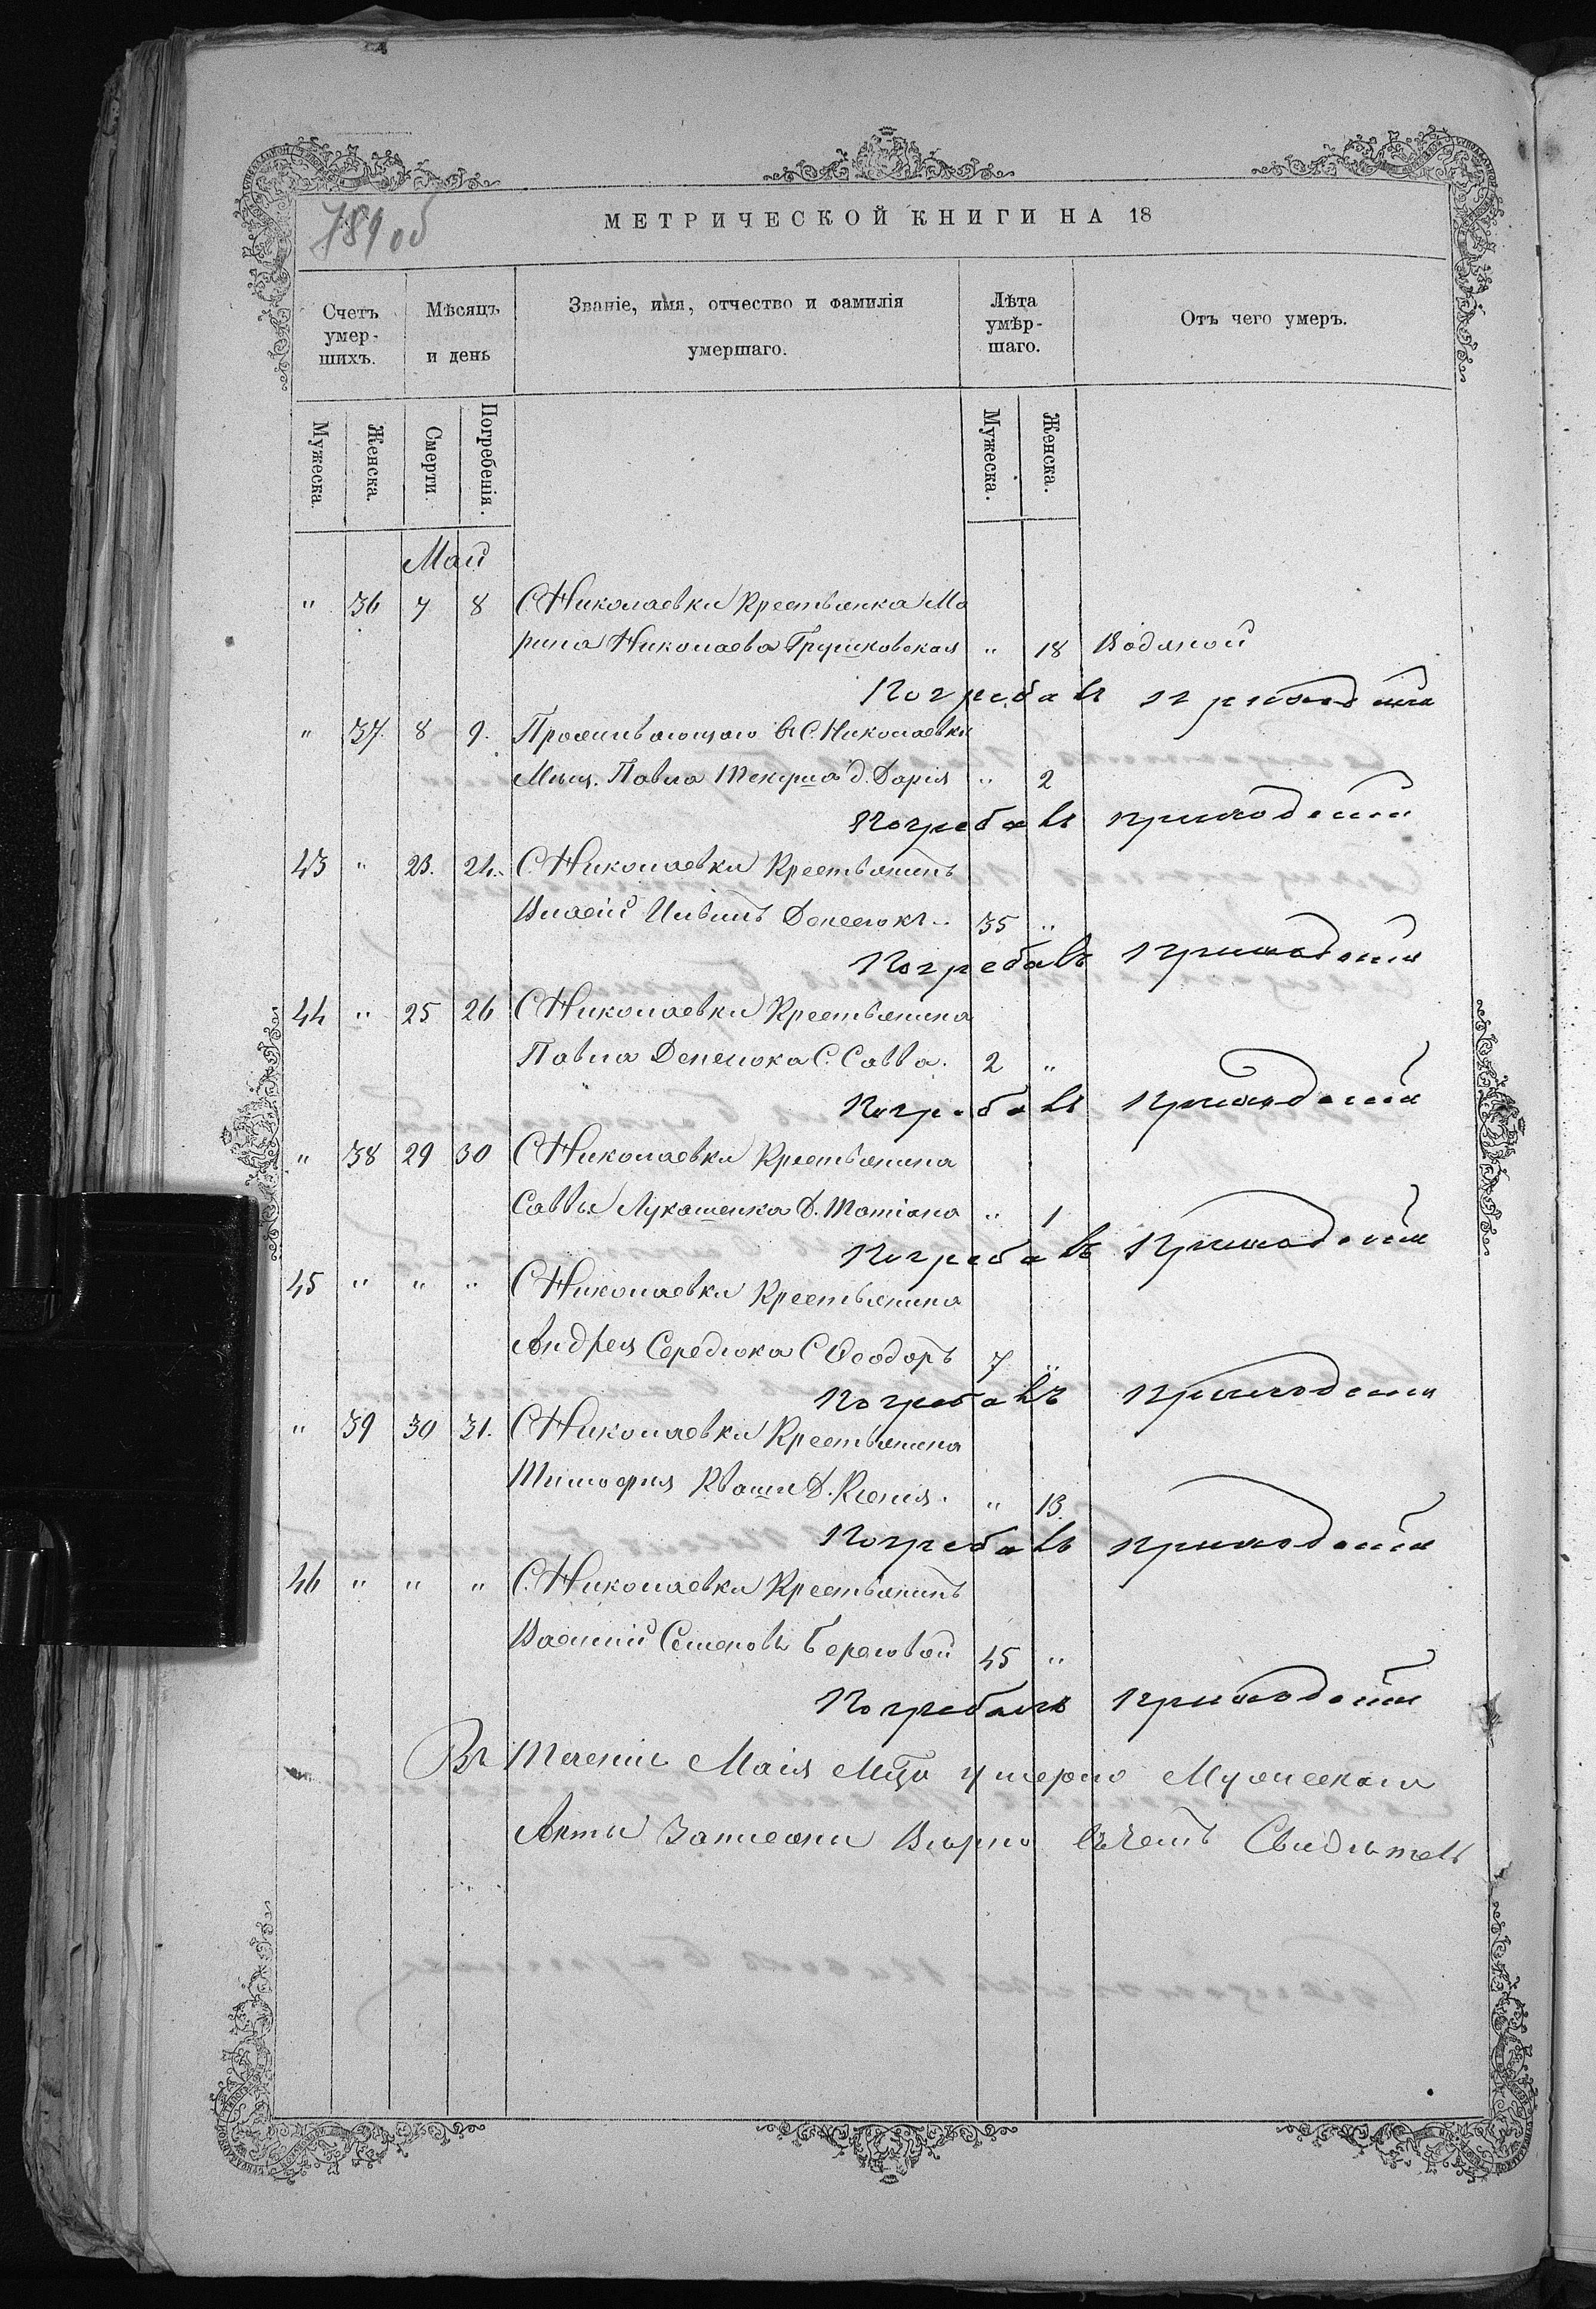 789 об
МЕТРИЧЕСКОЙ КНИГИ НА 18
Счетъ умер-шихъ.
Мѣсяцъ и день
Званіе, имя, отчество и фамилія умершаго.
Лѣта умѣр-шаго.
Отъ чего умеръ.
Мужеска.
Женска.
Смерти.
Погребенія.
Мужеска.
Женска.
Май
" 36 7 8 С Николаевки Крестьянка Ма
рина Николаева Грушковская " 18 Водяной
Погребалъ приходскій
" 37 8 9. Проживающаго въ С. Николаевки
Мѣщ. Павла д. Дарія " 2
Погребалъ приходскій
43 " 23. 24. С. Николаевки Крестьянинъ
35 "
Погребалъ приходскій
44 " 25 26 С Николаевки Крестьянина
Павла С. Савва. 2 "
Погребалъ приходскій
" 38 29 30 С Николаевки Крестьянина
Саввы Лукашенка д. Татіана " 1
Погребалъ приходскій
45 " " " С Николаевки Крестьянина
Андрея Середюка С Ѳеодоръ 7 "
Погребалъ приходскій
" 39 30 31. С Николаевки Крестьянина
Тимофея Кваши д. Ксенія. " 13.
Погребалъ приходскій
46 " " " С. Николаевки Крестьянинъ
Василій Семеновъ Береговой 45 "
Погребалъ приходскій
Въ теченіи Маія Мца умерло Мужескаго
Акты записаны вѣрно въ чемъ Свидѣтель